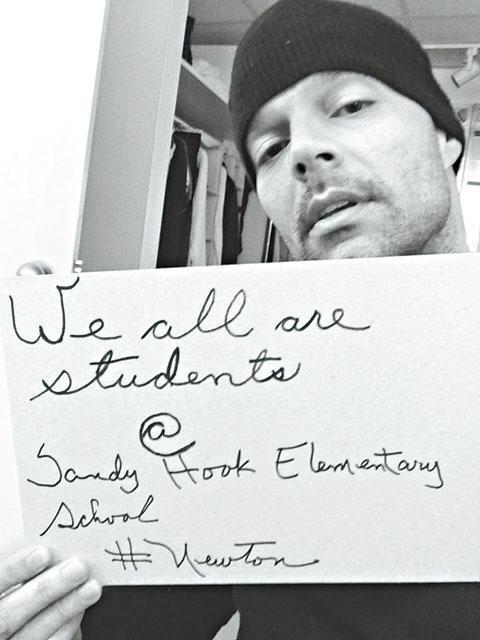 We all are
students
@
Sandy Hook Elementary
School
#Newton